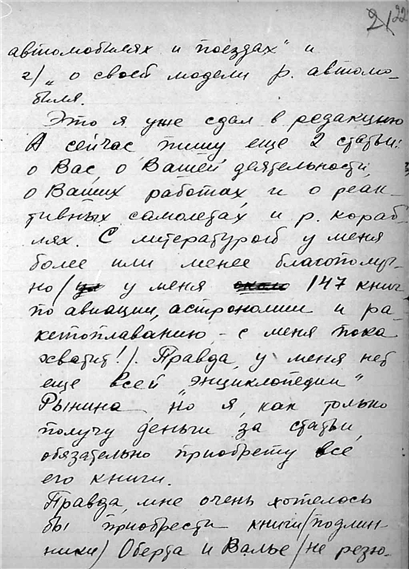 21 22
автомобилях и поездах" и
г/ „о своей модели р. автомо-
биля.
Это я уже сдал в редакцию
А сейчас пишу еще 2 статьи:
о Вас, о Вашей деятельности,
о Ваших работах, и о реак-
тивных самолетах и р. кораб-
лях. С литературой у меня
более или менее благополуч-
но / у меня 147 книг
по авиации, астрономии и ра-
кетоплаванию, - с меня пока
хватит!/. Правда, у меня нет
еще всей „энциклопедии"
Рынина, но я, как только
получу деньги за статьи,
обязательно приобрету все
его книги.
Правда, мне очень хотелось
бы приобрести книги /подлин-
ники/ Оберта и Валье /не резю-